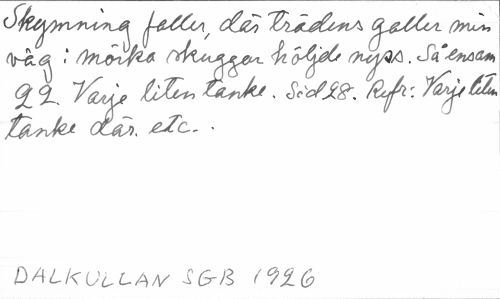 Skymning faller, där trädens galler min
väg i mörka skuggor höljde nyss. Så ensam
22 Varje liten tanke. Sid 28. Refr: Varje liten
tanke där. etc..
DALKULLAN SGB 1926